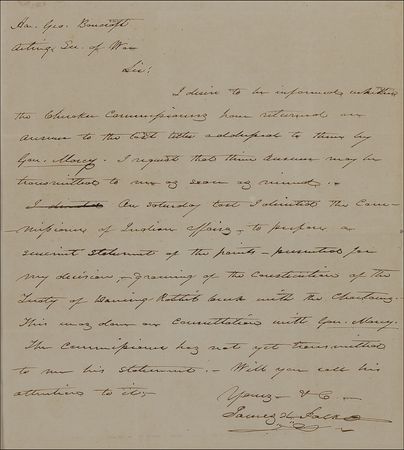 Hon. Geo. Bancroft
Acting Sec. of War
Sir:
I desire to be informed, whether
the Cherokee Commissioners have returned an
answer to the last letter addressed to them by
Gov. Marcy. I request that their answer may be
transmitted to me as soon as received.
On Saturday last I directed the Com-
missioner of Indian affairs, to prepare a
succinct statement of the points presented for
my decision, growing of the Construction of the
Treaty of Dancing Rabbit Creek with the Choctaws.
This was done on Consultation with Gov. Marcy.
The Commissioner has not yet transmitted
to me his statement. - Will you call his
attention to it.
Yours &C.
James K. Polk